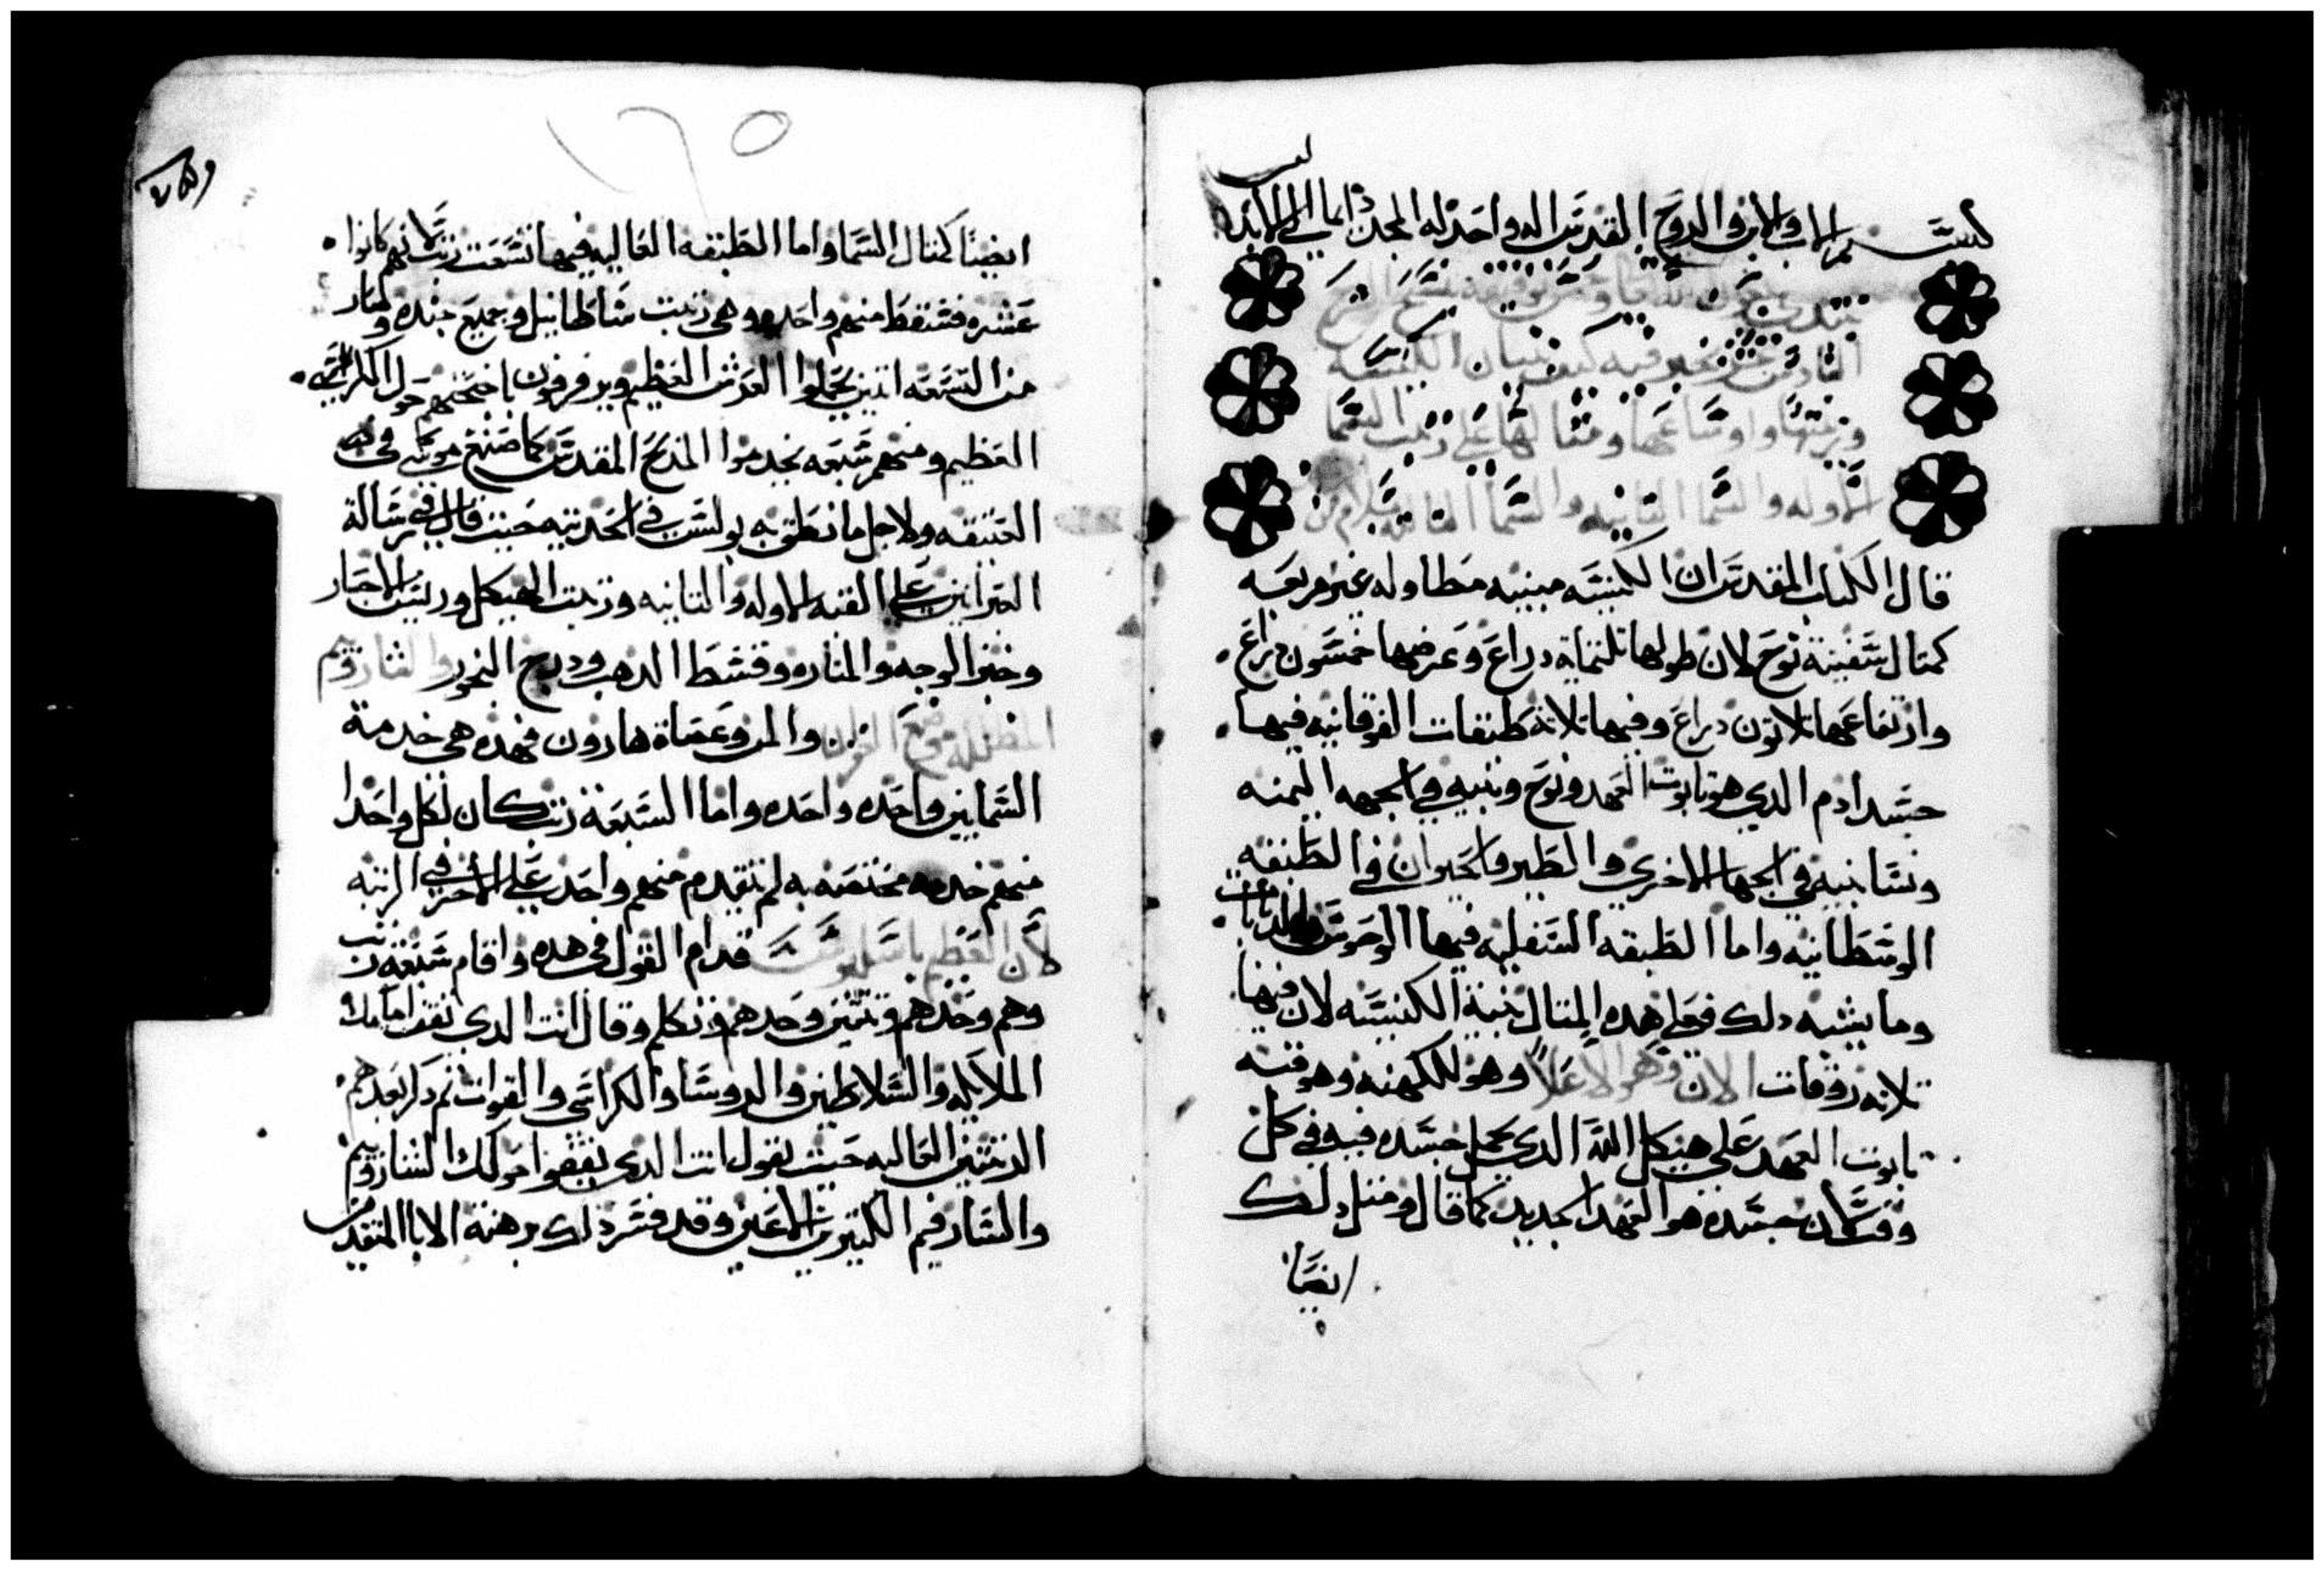 بسم الاب والابن والروح القدس اله واحد له المجد دايما الى الابد
نبتدي بعون الله تعالى وحسن توفيقه بنسخ الشرح
الثاني عشر نخبر فيه كيف بنيان الكنيسه
ورتبتها واوضاعها ومثالها على رتب السما
الاوله والسما الثانيه والسما الثالثه بسلام من
قال الكتاب المقدس ان الكنيسه مبنيه مطاوله غير مربعه
كمثال سفينة نوح لان طولها تلتماية دراع وعرضها خمسون دراع
وارتفاعها تلاتون دراع وفيها تلاته طبقات الفوقانيه فيها
جسد ادم الدي هو تابوت العهد ونوح وبنيه في الجهه اليمنه
ونسا بنيه في الجهه الاخرى والطير والحيوان في الطبقه
الوسطانيه واما الطبقه السفليه فيها الوحوش والدبابات
وما يشبه دلك فعلى هده المتال بنية الكنيسه لان فيها
تلاته روقات الان وهو الاعلا وهو للكهنه وهو قبة
تابوت العهد على هيكل الله الدي يحمل جسده فيه في كل
وقت لان جسده هو العهد الجديد كما قال ومتل دلك
ايضا
ايضا كمتال السما واما الطبقه العاليه فيها تسعت رتب لانهم كانوا
عشره فسقط منهم واحده وهي رتبت ساطانيل وجميع جنده وصار
من التسعه اتنين يحملوا العرش العظيم ويرفرفون باجنحتهم حول الكرسي
العظيم ومنهم سبعه يخدموا المدبح المقدس كما صنع موسى في قبة
العتيقه ولاجل ما نطق به بولس في الحديته حيت قال في رسالة
العبرانيين على القبه الاوله والتانيه ورتبت الهيكل وريس الاحبار
وخبز الوجه والمناره وقسط الدهب ودرج البخور والشاروبيم
المظلله موضع الغفران والمن وعصاة هارون فهده هي خدمة
السمايين واحده واحده واما السبعة رتب كان لكل واحدا
منهم خدمه مختصه به لم يتقدم منهم واحد على الاخر في الرتبه
لان العظيم باسيليوس قدام القول في هده واقام سبعة رتب
وهم وحدهم وتنين وحدهم وتكلم وقال انت الدي تقف امامك
الملايكه والسلاطين والروسا والكراسى والقوات تم دكر بعدهم
الرتبتين العاليه حيت يقول انت الدي يقفوا حولك الشاروبيم
والسارفيم الكتيرين الاعين وقد فسر دلك برهنة الابا المتقدمين